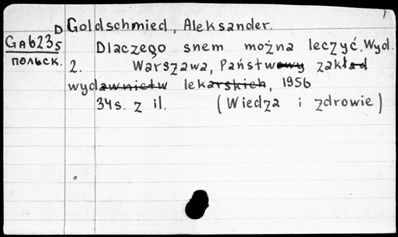 D Goldschmied, Aleksander.
Ga6235
польск.
Dlaczego snem można leczyć. Wyd.
2. Warszawa, Państwowy zakład
wydawnictw lekarskich, 1956
34s. z il. (Wiedza i zdrowie)